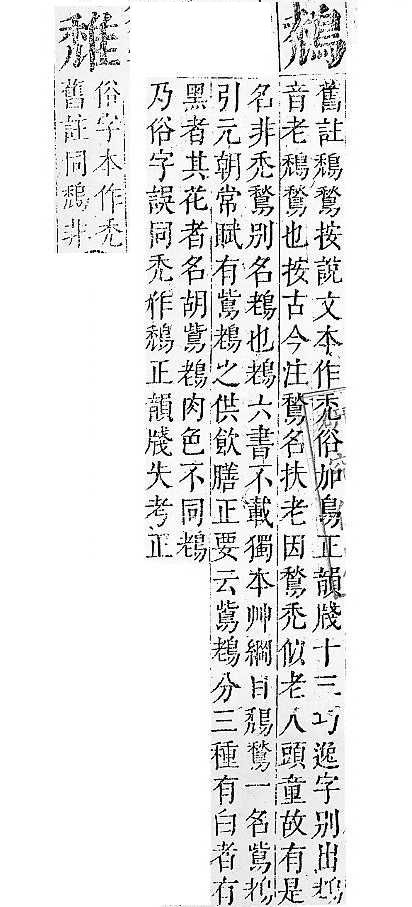 鵚
舊註鵚鶖按說文本作禿俗加鳥正韻牋十三巧逸字別出䳓
音老鵚鶖也按古今注鶖名扶老因鶖禿似老人頭童故有是
名非禿鶖別名䳓也䳓六書不載獨本艸綱目鵚鶖一名鴜䳓
引元朝常賦有鴜䳓之供飲膳正要云鴜䳓分三種有白者有
黑者其花者名胡鴜䳓肉色不同䳓
乃俗字誤同禿作鵚正韻牋失考正
俗字本作禿
舊註同鵚非